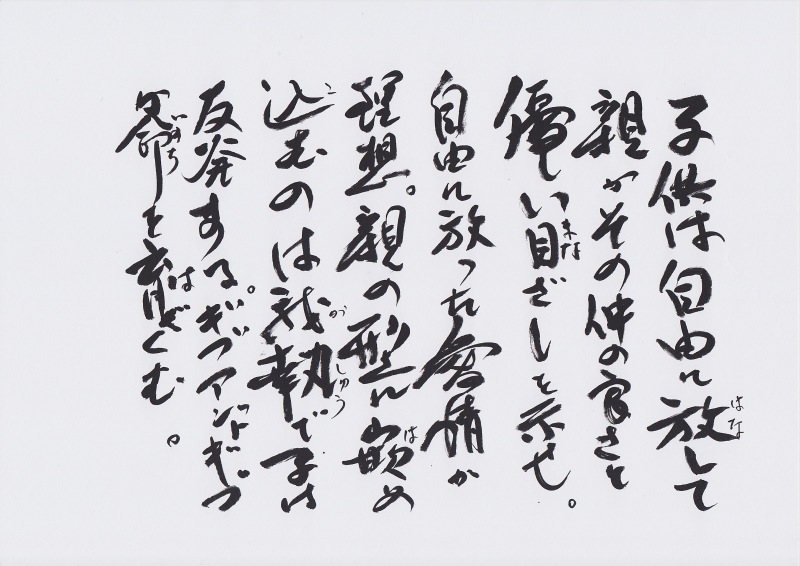 子供は自由に放して
親がその仲の良さと
優しい目ざしを示せ。
自由に放った愛情が
理想。親の型に嵌め
込むのは我執で子は
反発する。ギブアンドギブ
が命を育くむ。